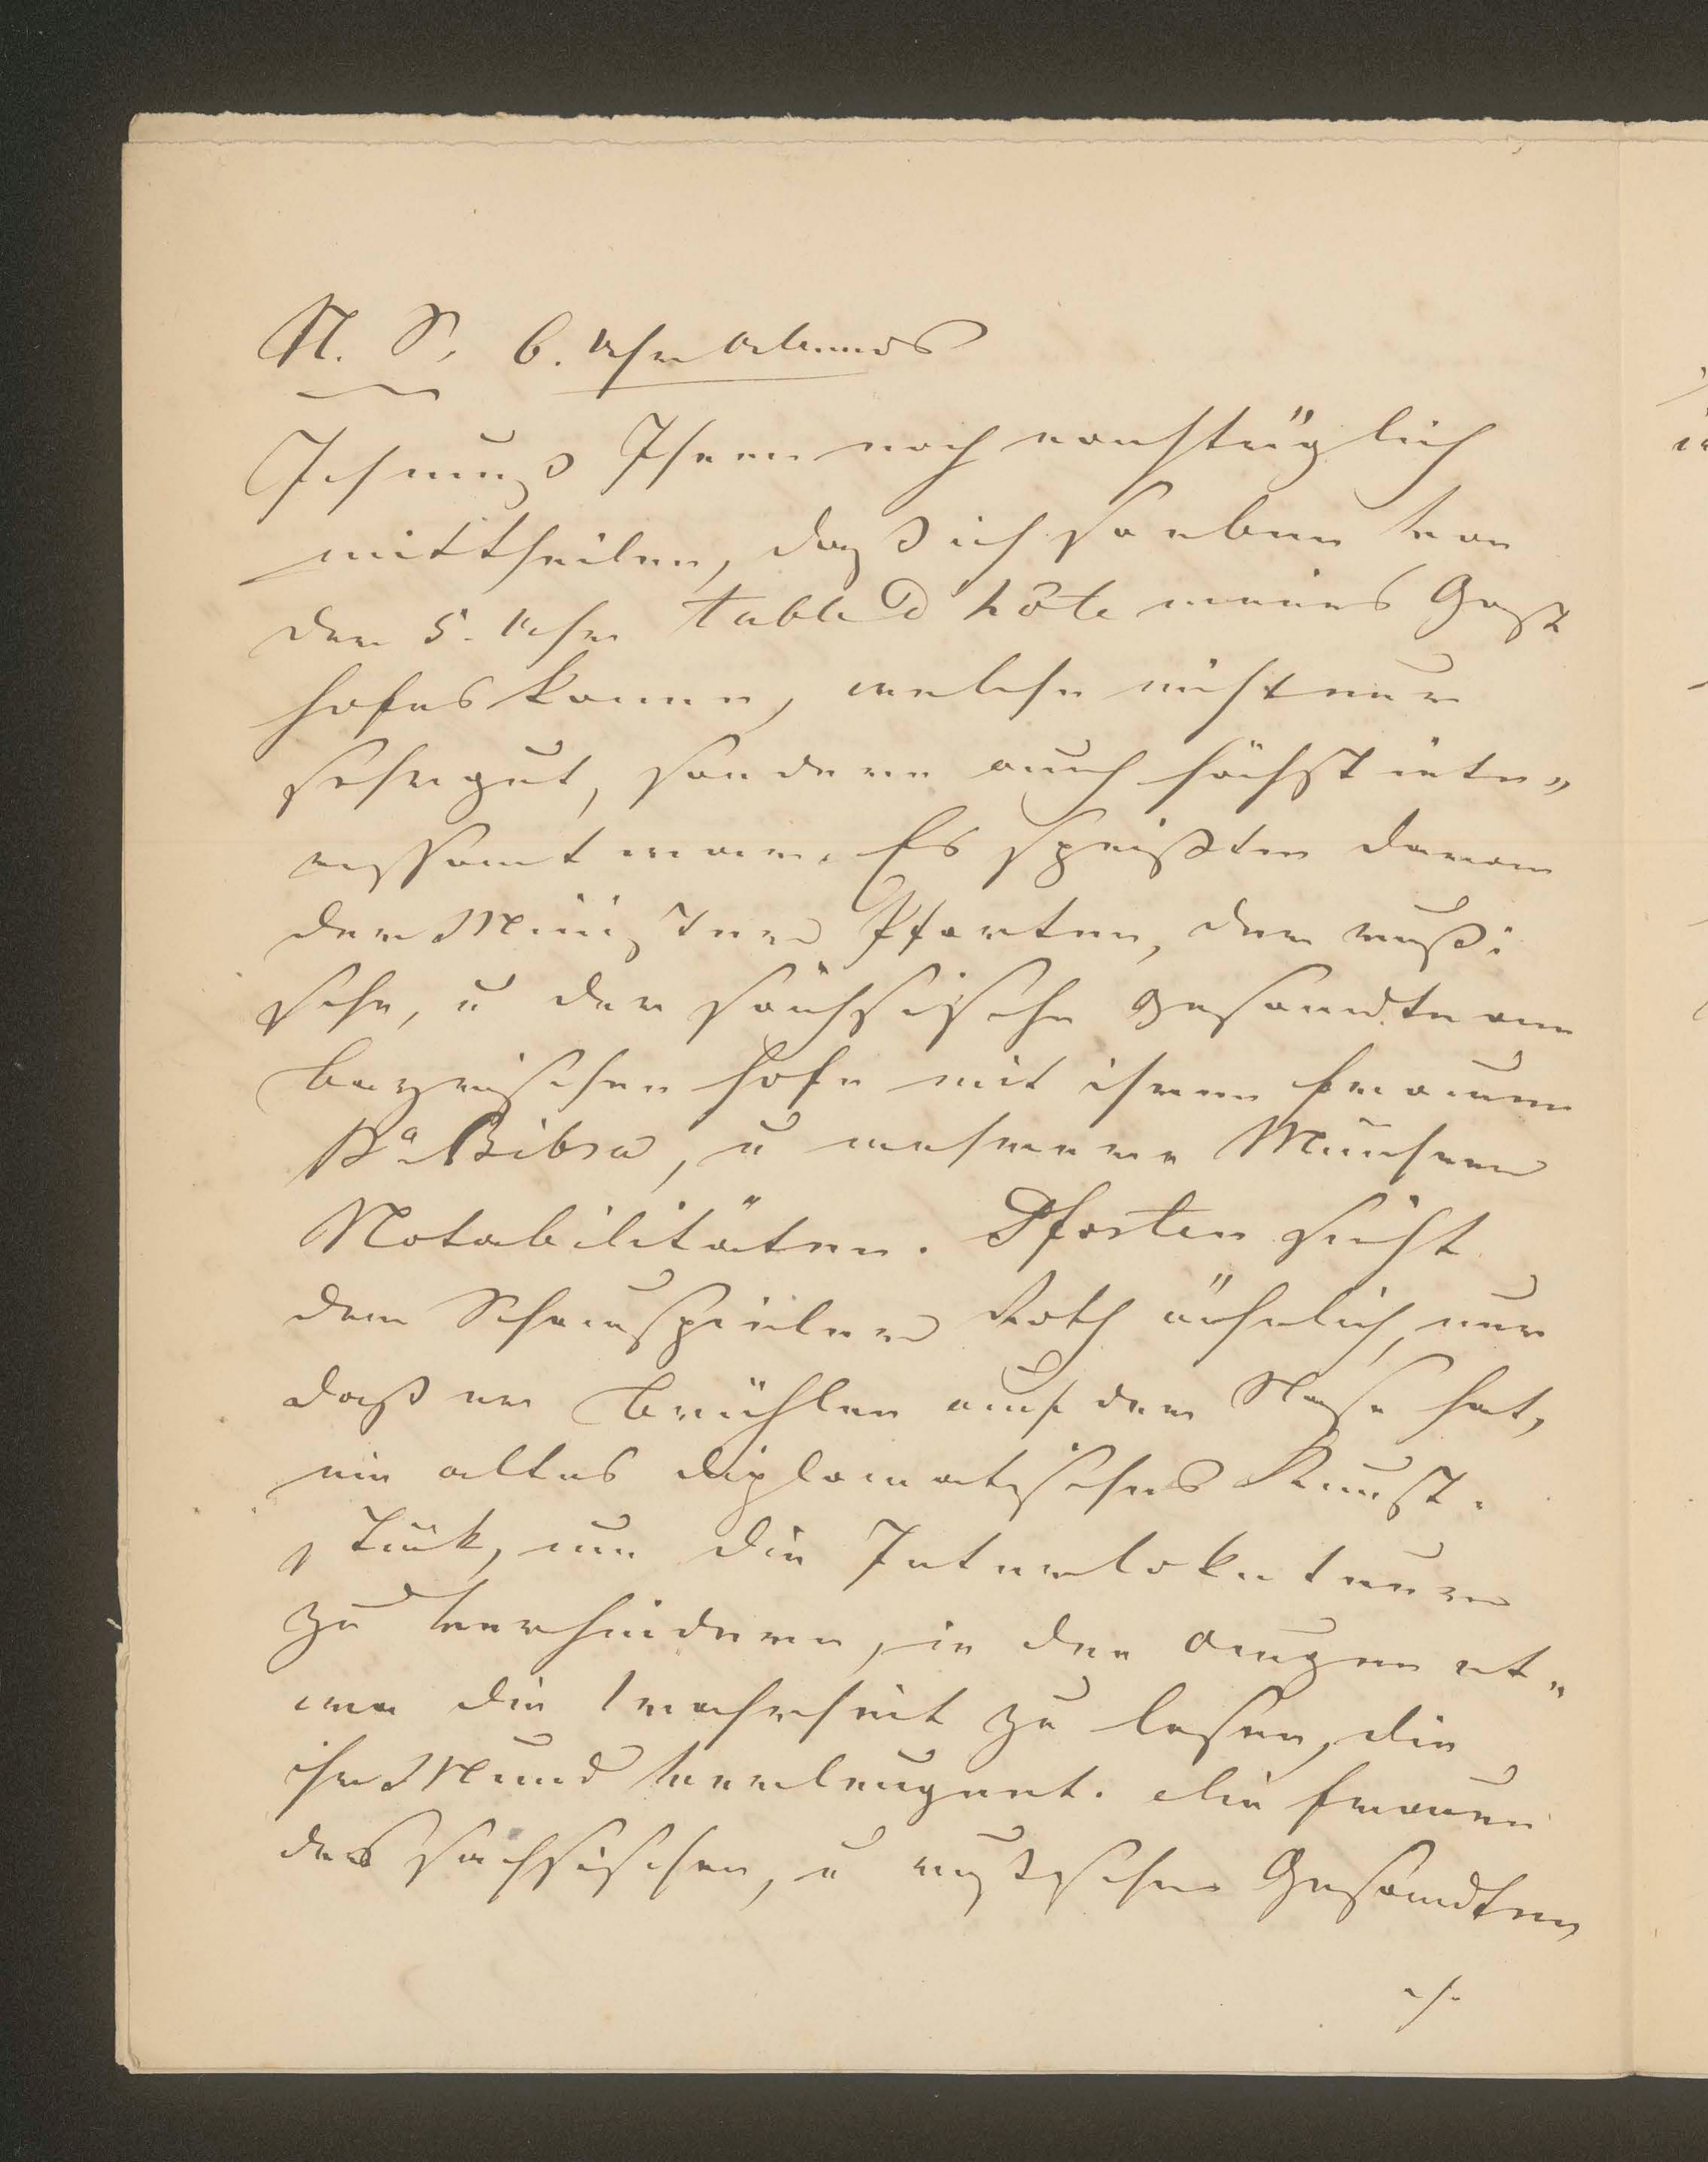 N. S. 6. Uhr Abends
Ich muß Ihnen noch nachträglich
mittheilen, daß ich so eben von
der 5. Uhr table d'hôte meines Gast
hofes komme, welche nicht nur
sehr gut, sondern auch höchst inte„
ressant war. Es speißten daran
der Minister Pforten, der rußi
sche, u der sächsische Gesandte am
bayrischen Hofe mit ihren Frauen
Bibra, u mehrere Münchner
Notabilitäten. Pforten sieht
dem Schauspieler Roth ähnlich, nur
daß er Brühlen auf der Nase hat,
ein altes diplomatisches Kunst-
stük, um die Interlokuteure
zu verhindern, in den Augen et„
wa die Wahrheit zu lesen, die
ihr Mund verleugnet. Die Frauen
des sächsischen, u russischen Gesandten
./.